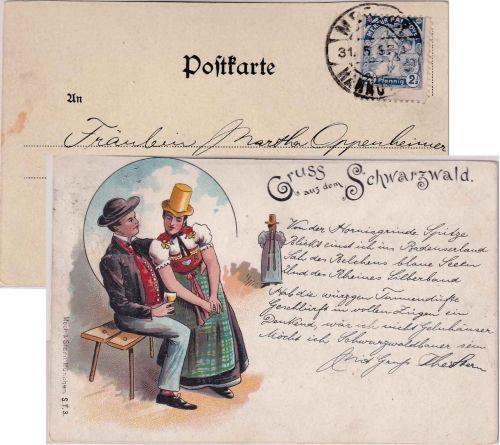 Postkarte
An
Fräulein Martha Oppenheimer
31.
2
Pfennig
Gruss
aus dem
Schwarzwald.
Von der Hornisgrinde Spitze
Blickt einst ich im Badenserland
Sah des Belchens blaue Seen
Und des Rheines Silberband
Hab die würzgen Tannendüfte
Geschlürft in vollen Zügen ein
Denkend, wär ich nicht
Möcht ich Schwarzwaldbauer sein
Gruß
München. S. F. 3.